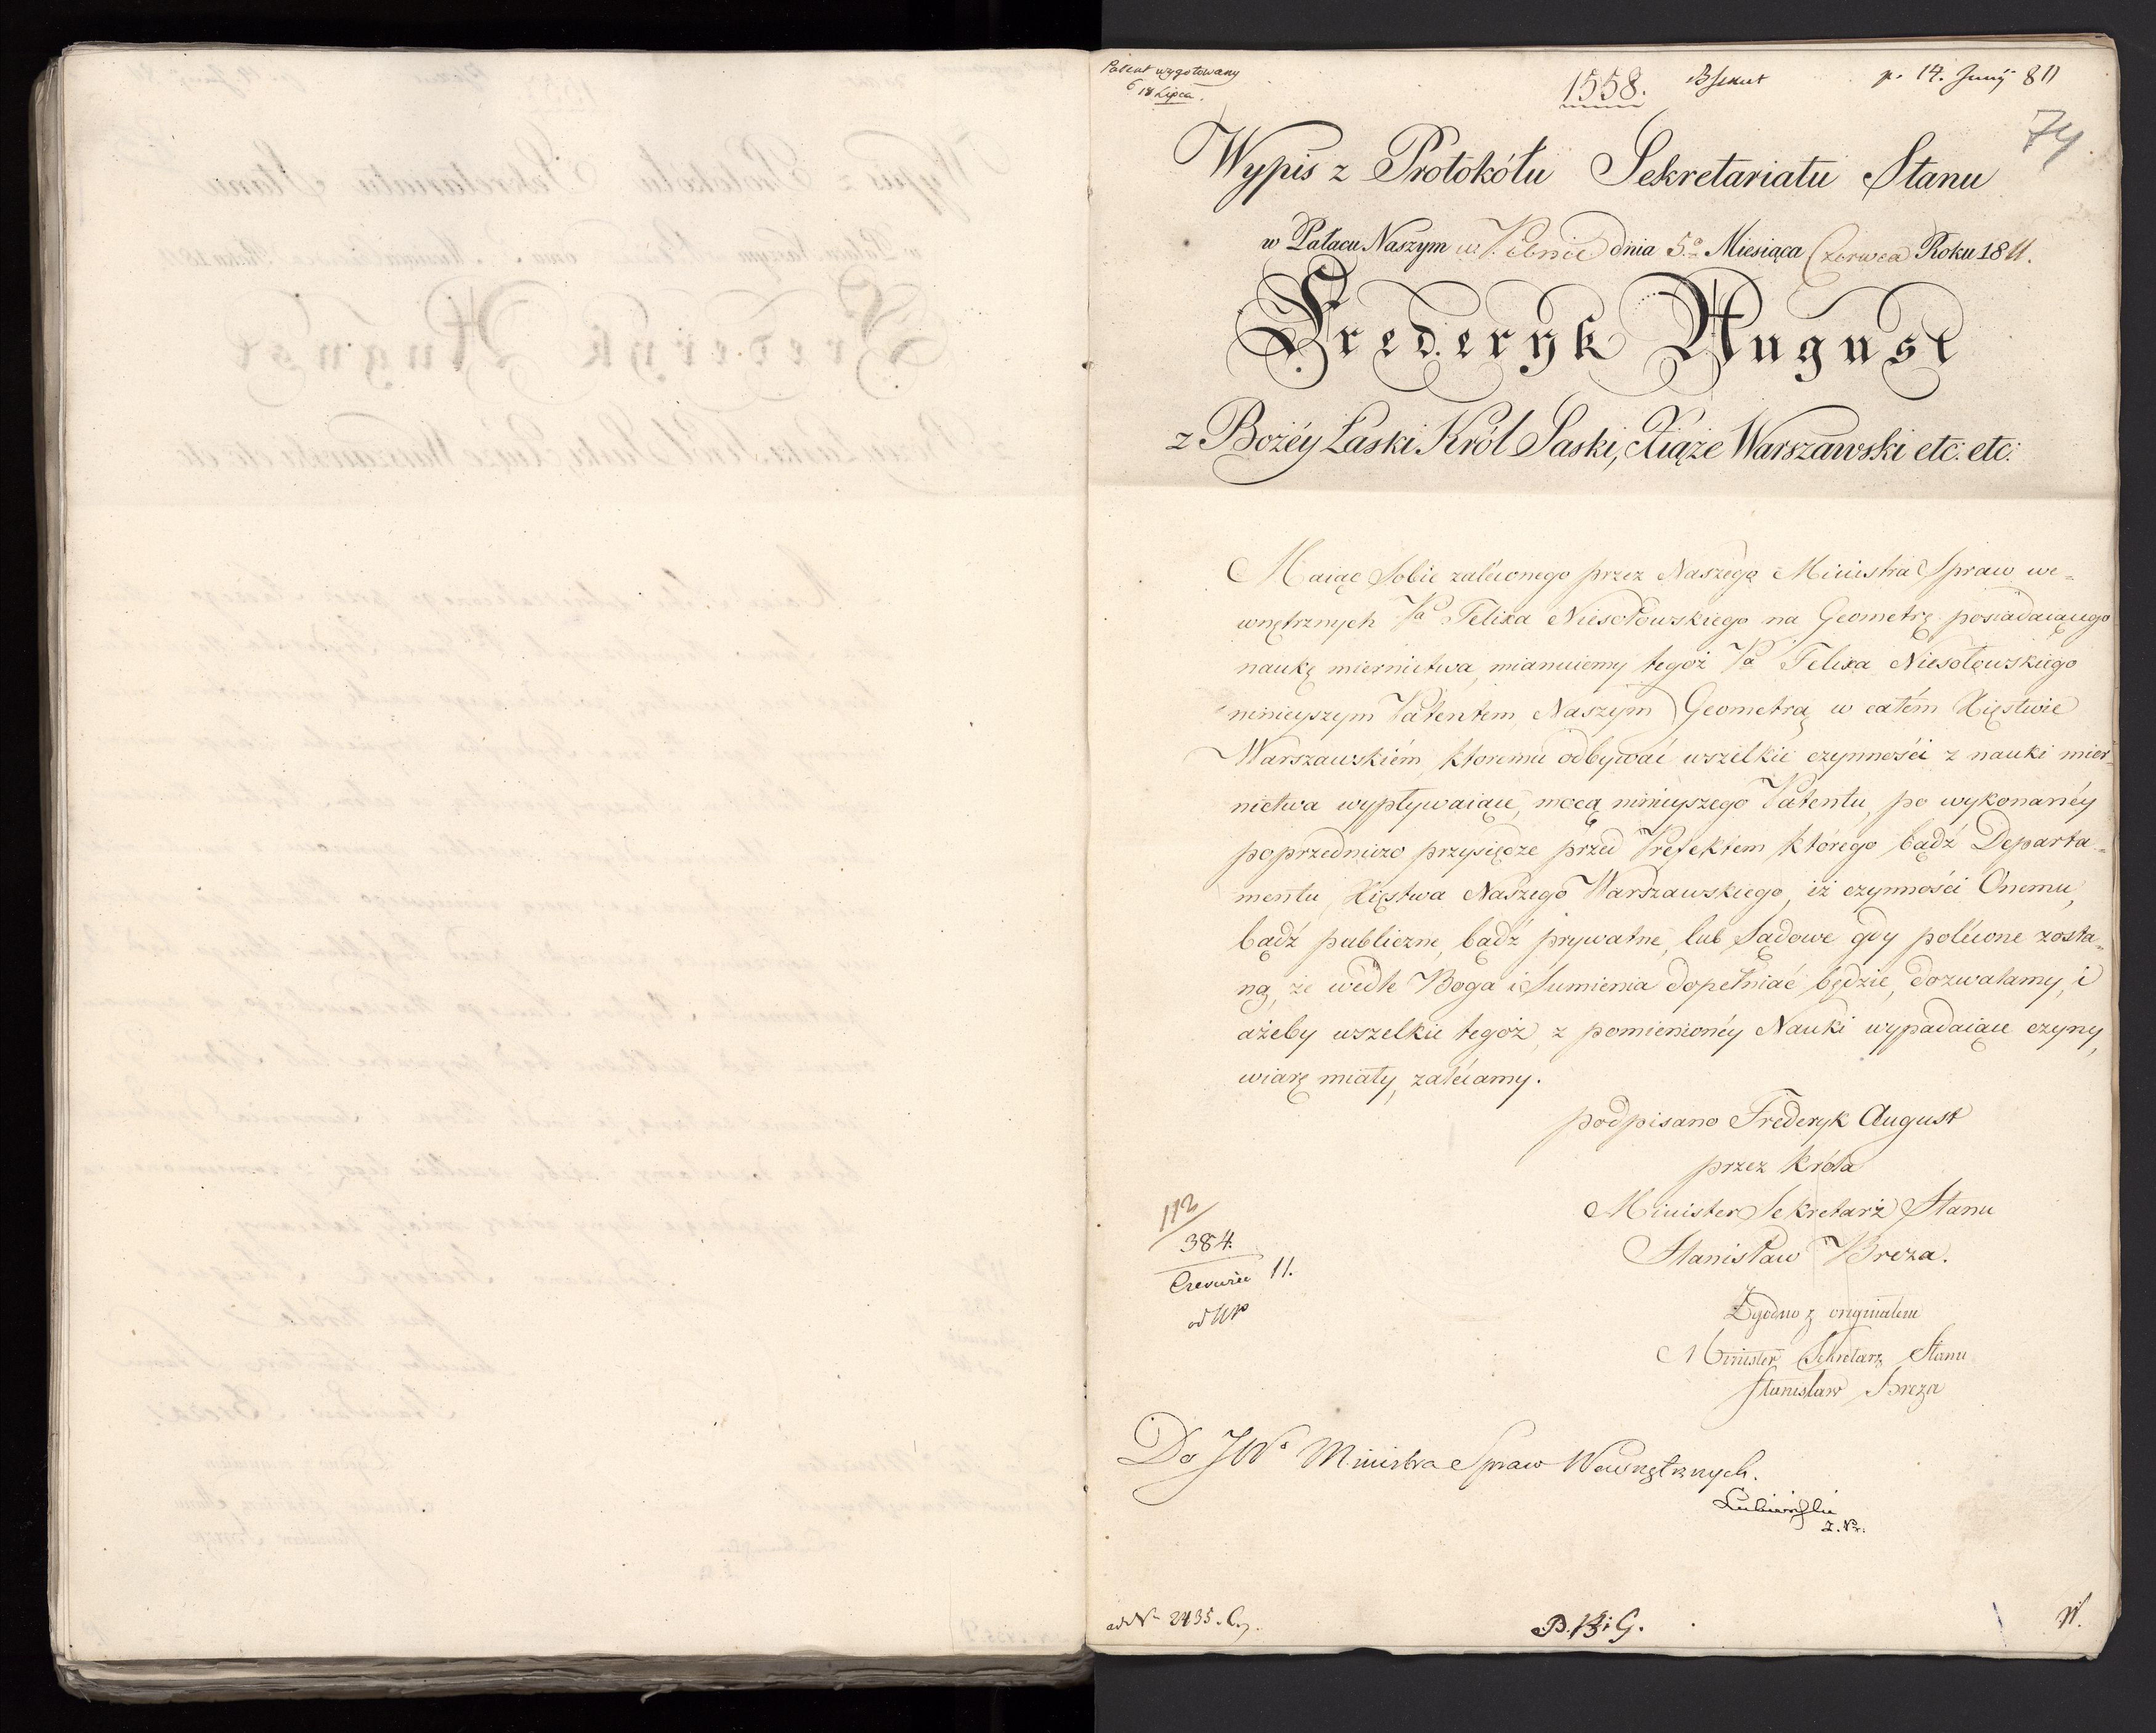 Patent wygotowany
6 18 Lipca.
1558.
p. 14. Junÿ 811
74
Wypis z Protokółu Sekretariatu Stanu
w Pałacu Naszym w Pilnic dnia 5.º Miesiąca Czerwca Roku 1811.
Frederyk August
z Bożéy Łaski Król Saski, Xiąże Warszawski etc: etc:
Maiąc Sobie zaleconego przez Naszego Ministra Spraw we=
wnętrznych Pª Felixa Niesołowskiego na Geometrę posiadaiącego
naukę miernictwa, mianuiemy tegoż Pª Felixa Niesołowskiego
ninieyszym Patentem Naszym Geometrą w całém Xięstwie
Warszawskiém, ktoremu odbywać wszelkie czynności z nauki mier=
nictwa wypływaiące, mocą ninieyszego Patentu, po wykonanéy
poprzedniczo przysiędze przed Prefektem którego bądź Departa=
mentu, Xięstwa Naszego Warszawskiego, iż czynności Onemu,
bądź publiczne, bądź prywatne, lub Sądowe gdy polecone zosta=
ną, że wedle Boga i Sumienia dopełniać będzie, dozwalamy, i
ażeby wszelkie tegoż, z pomienionéy Nauki wypadaiące czyny,
wiarę miały, zalécamy.
podpisano Frederyk August
przez Króla
Minister Sekretarz Stanu
Stanisław Breza.
112
384.
Czerwiec 11.
Zgodno z originałem
Minister Sekretarz Stanu
Stanisław Breza
Do JWº Ministra Spraw Wewnętrznych.
ad Nº 2435. Cz.
B. B: G.